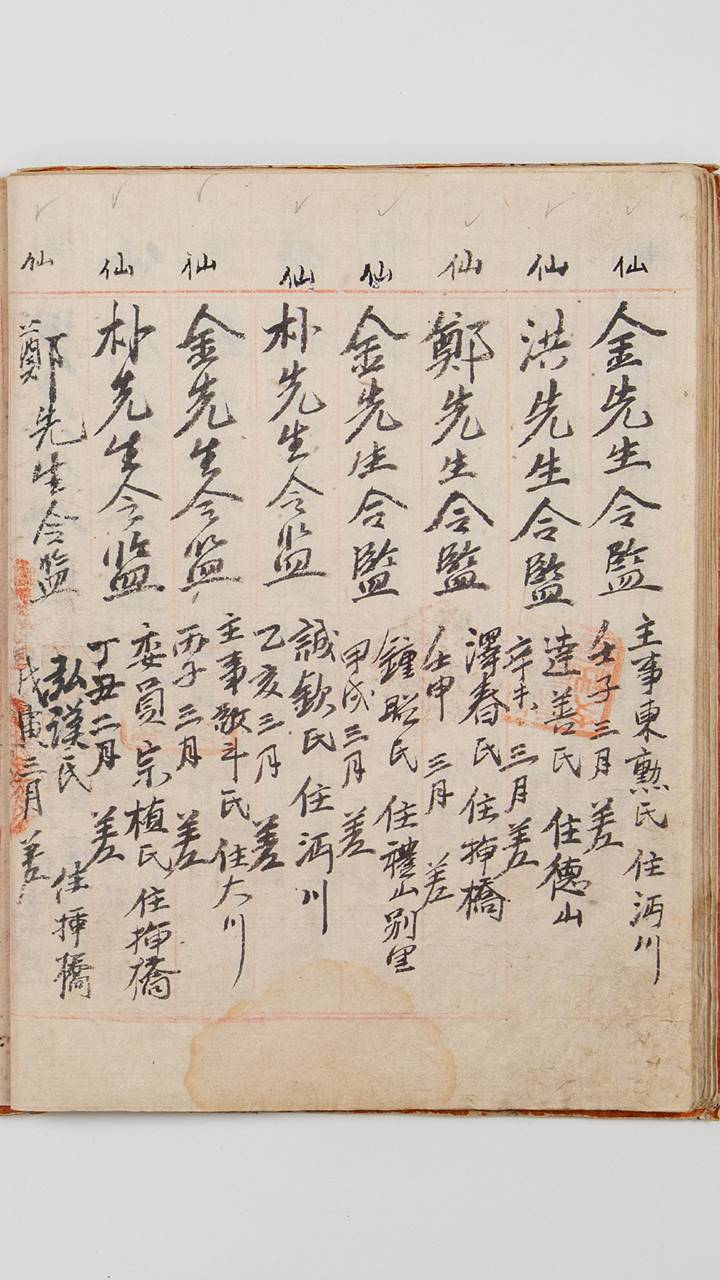 仙 金先生令監 主事東勲氏 住沔川
壬子 三月 差
仙 洪先生令監 達善氏 住德山
辛未 三月 差
仙 鄭先生令監 澤春氏 住揷橋
壬申 三月 差
仙 金先生令監 鍾聡氏 住禮山別里
甲戌 三月 差
仙 朴先生令监 誠欽氏 住沔川
乙亥 三月 差
仙 金先生令监 主事敬斗氏 住大川
丙子 三月 差
仙 朴先生令监 委員宗植氏 住揷橋
丁丑 二月 差
仙 鄭先生令监 弘漢氏 住揷橋
戊寅 三月 差